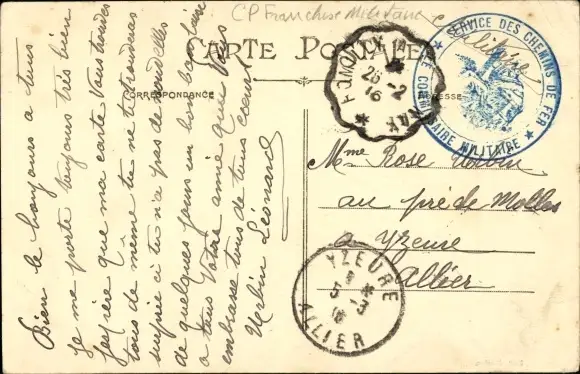 CP Franchise Militaire
CARTE POSTALE
CORRESPONDANCE
ADRESSE
SERVICE DES CHEMINS DE FER
MILITAIRE
28-2
16
Bien le bonjours a tous
Je me porte toujours très bien
j'espière que ma carte Vous trouvera
tous de même tu ne te trouveras
surprie ci tu n'a pas de nouvelles
de quelques jours un bon
a tous Votre amie que Vous
embrasse tous de tous coeur
Urbin Léonard
Mme Rose Urbin
au pré de Molles
a Yzeure
Allier
YZEURE
5-3
16
ALLIER